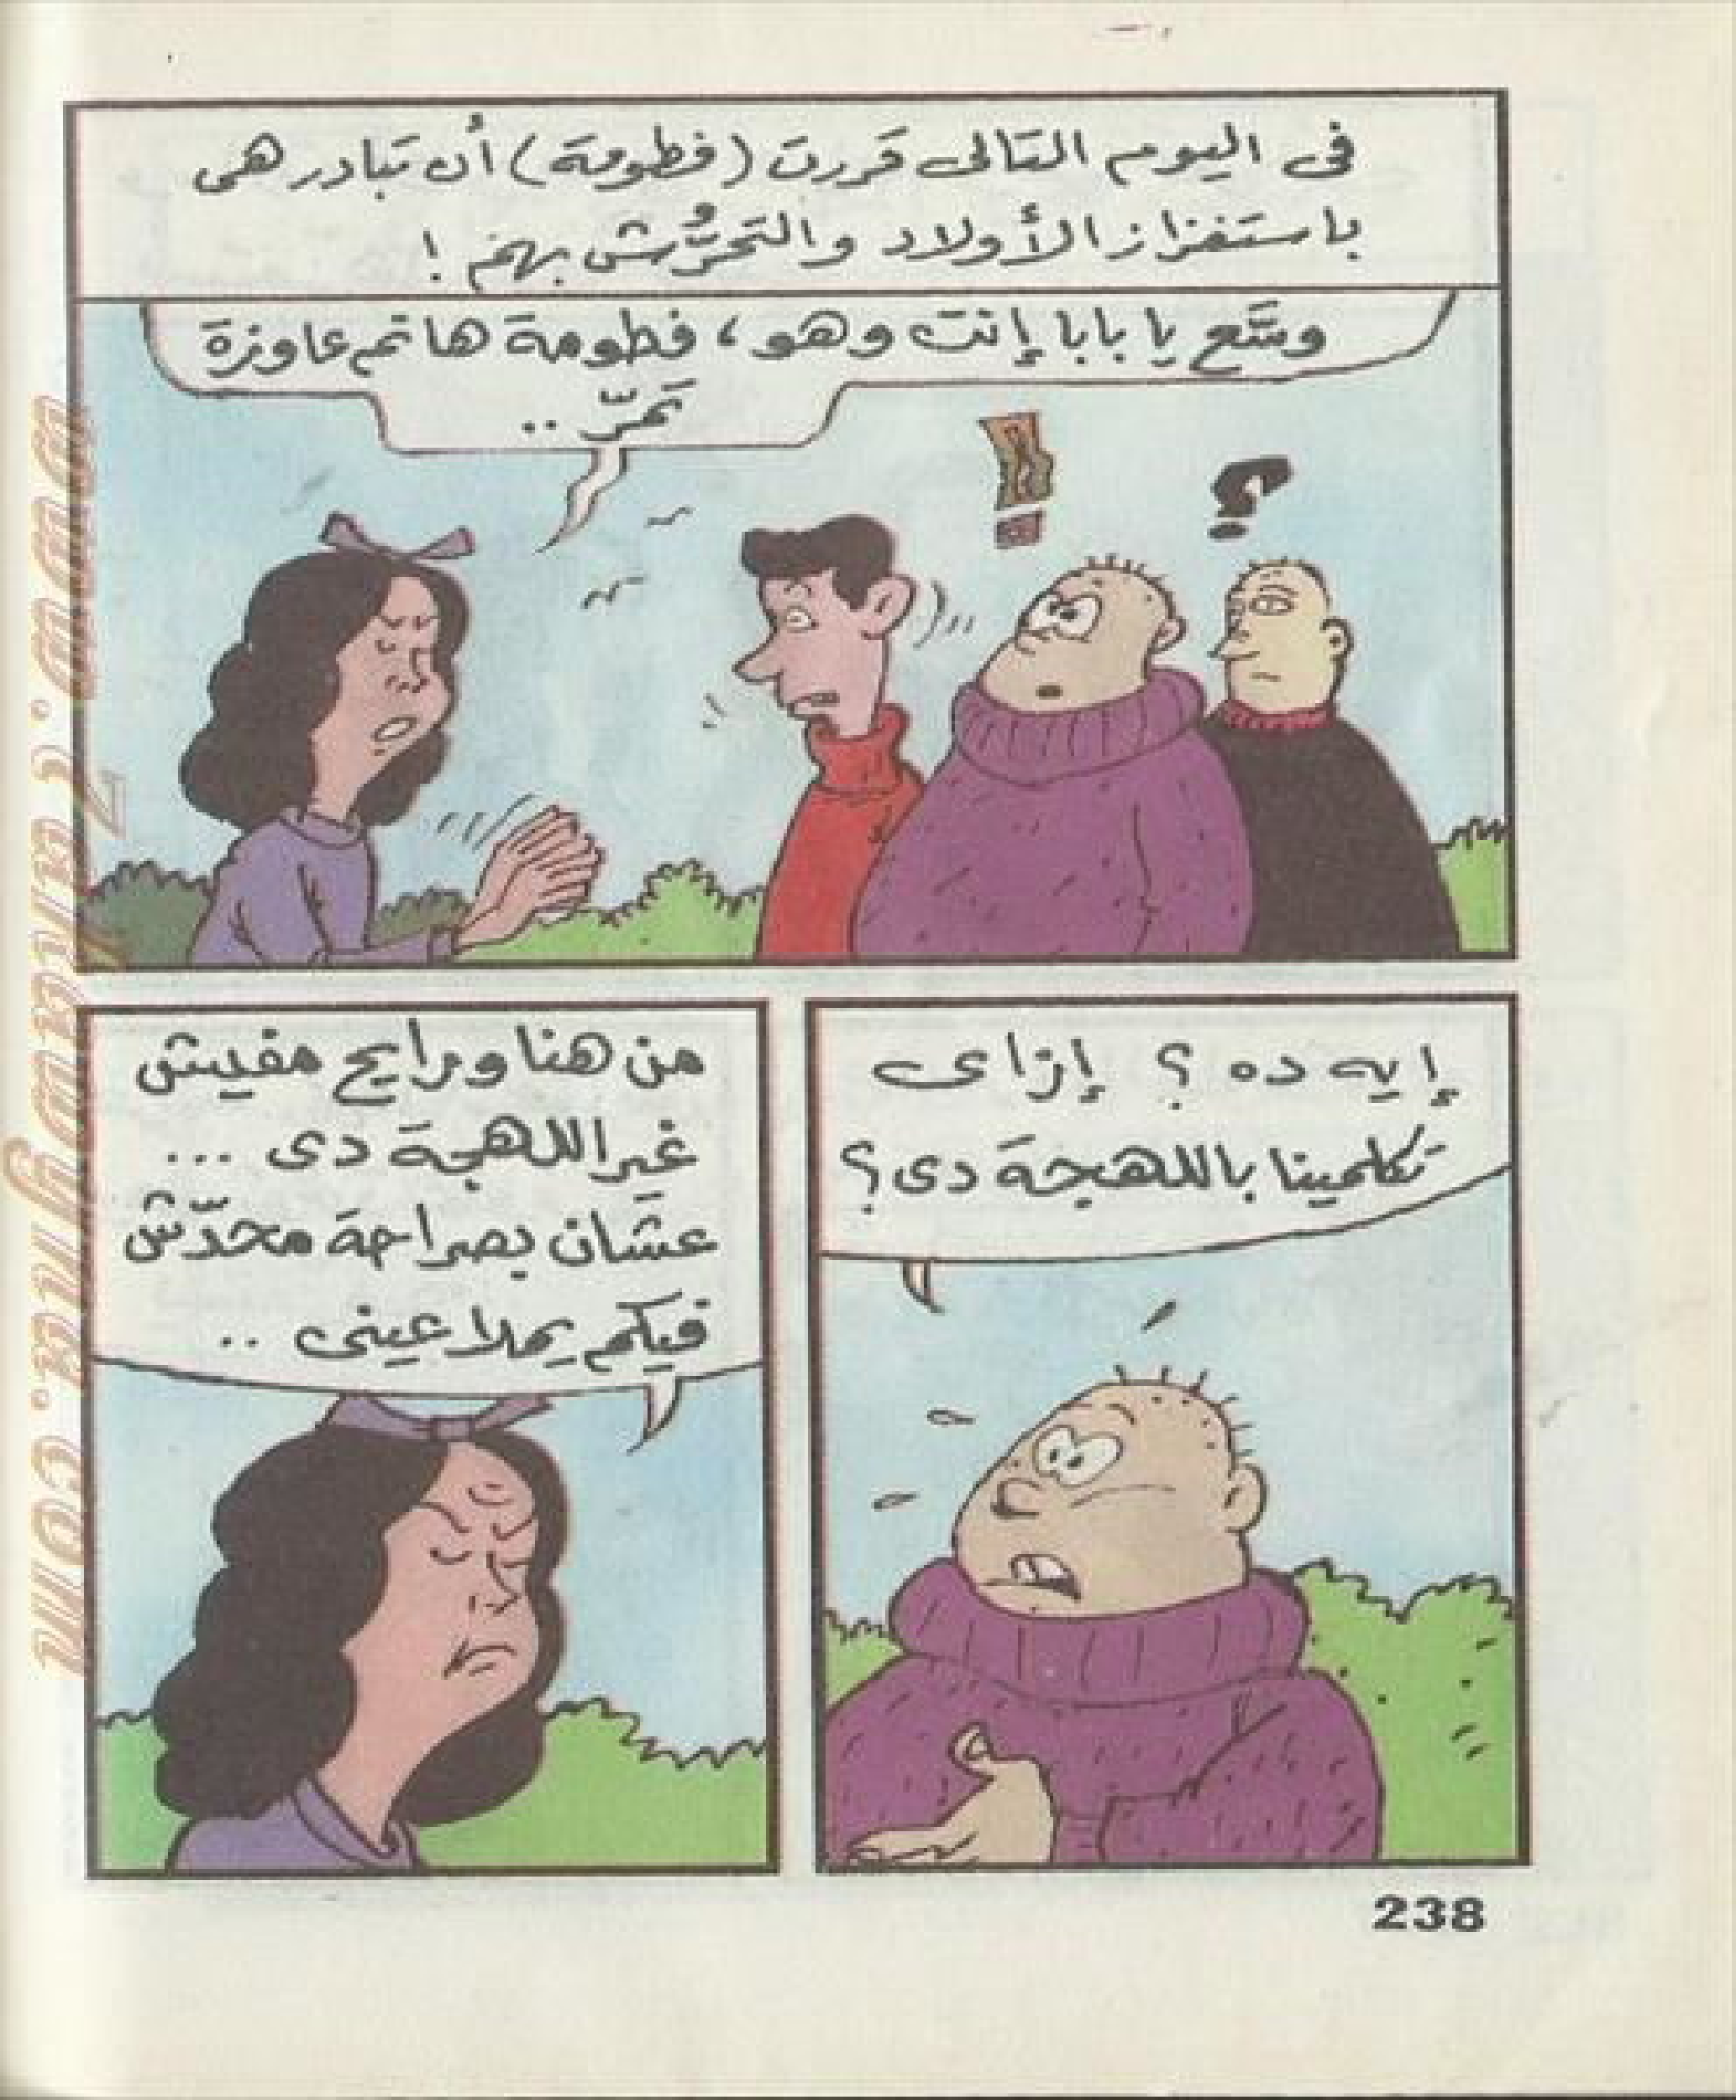 فى اليوم التالى قررت (فطومة) أن تبادر هى
باستفزاز الأولاد والتحرُّش بهم !
وسَّع يا بابا إنت وهو، فطومة هانم عاوزة
تمرّ ..
إيه ده ؟ إزاى
تكلمينا باللهجة دى ؟
من هنا ورايح مفيش
غير اللهجة دى ...
عشان بصراحة محدّش
فيكم يملا عينى ..
238